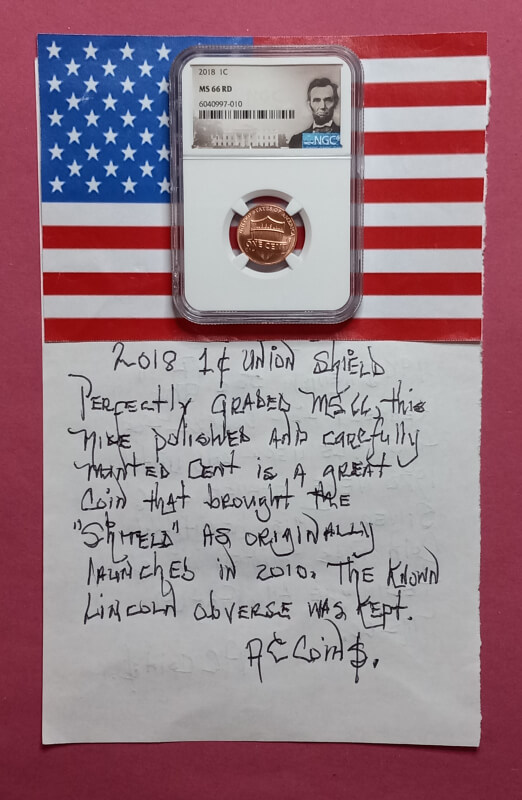 2018 1C
MS 66 RD
6040997-010
NGC
UNITED STATES OF AMERICA
ONE CENT
2018 1¢ UNION SHIELD
PERFECTLY GRADED MS66, this
NICE POLISHED AND CAREFULLY
MINTED CENT IS A GREAT
COIN that brought the
"SHIELD" AS ORIGINALLY
LAUNCHED in 2010. THE KNOWN
LINCOLN OBVERSE WAS KEPT.
A¢ COIN$.